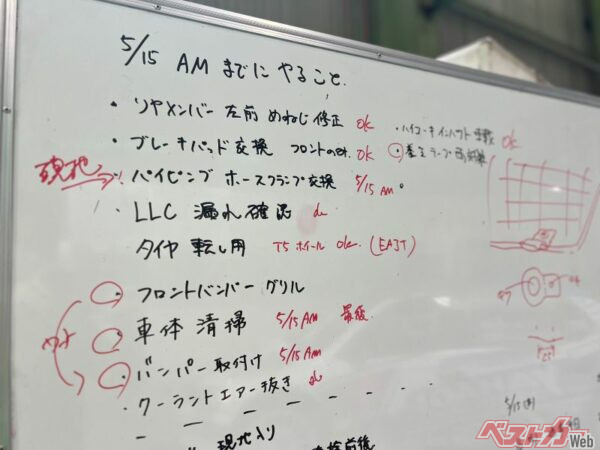 5/15 AM までにやること.
・リヤメンバー 左前 めねじ修正 ok
・ブレーキパッド交換 フロントのみ. ok
現地 ・パイピング ホースクランプ交換 5/15 AM
・LLC 漏れ確認
タイヤ 転し用 T5 ホイール ok. (EA3T)
・フロントバンパー グリル
・車体 清掃 5/15 AM 最終
・バンパー取付け 5/15 AM
・クーラントエアー抜き
現地入り
ok
ベストカーWeb